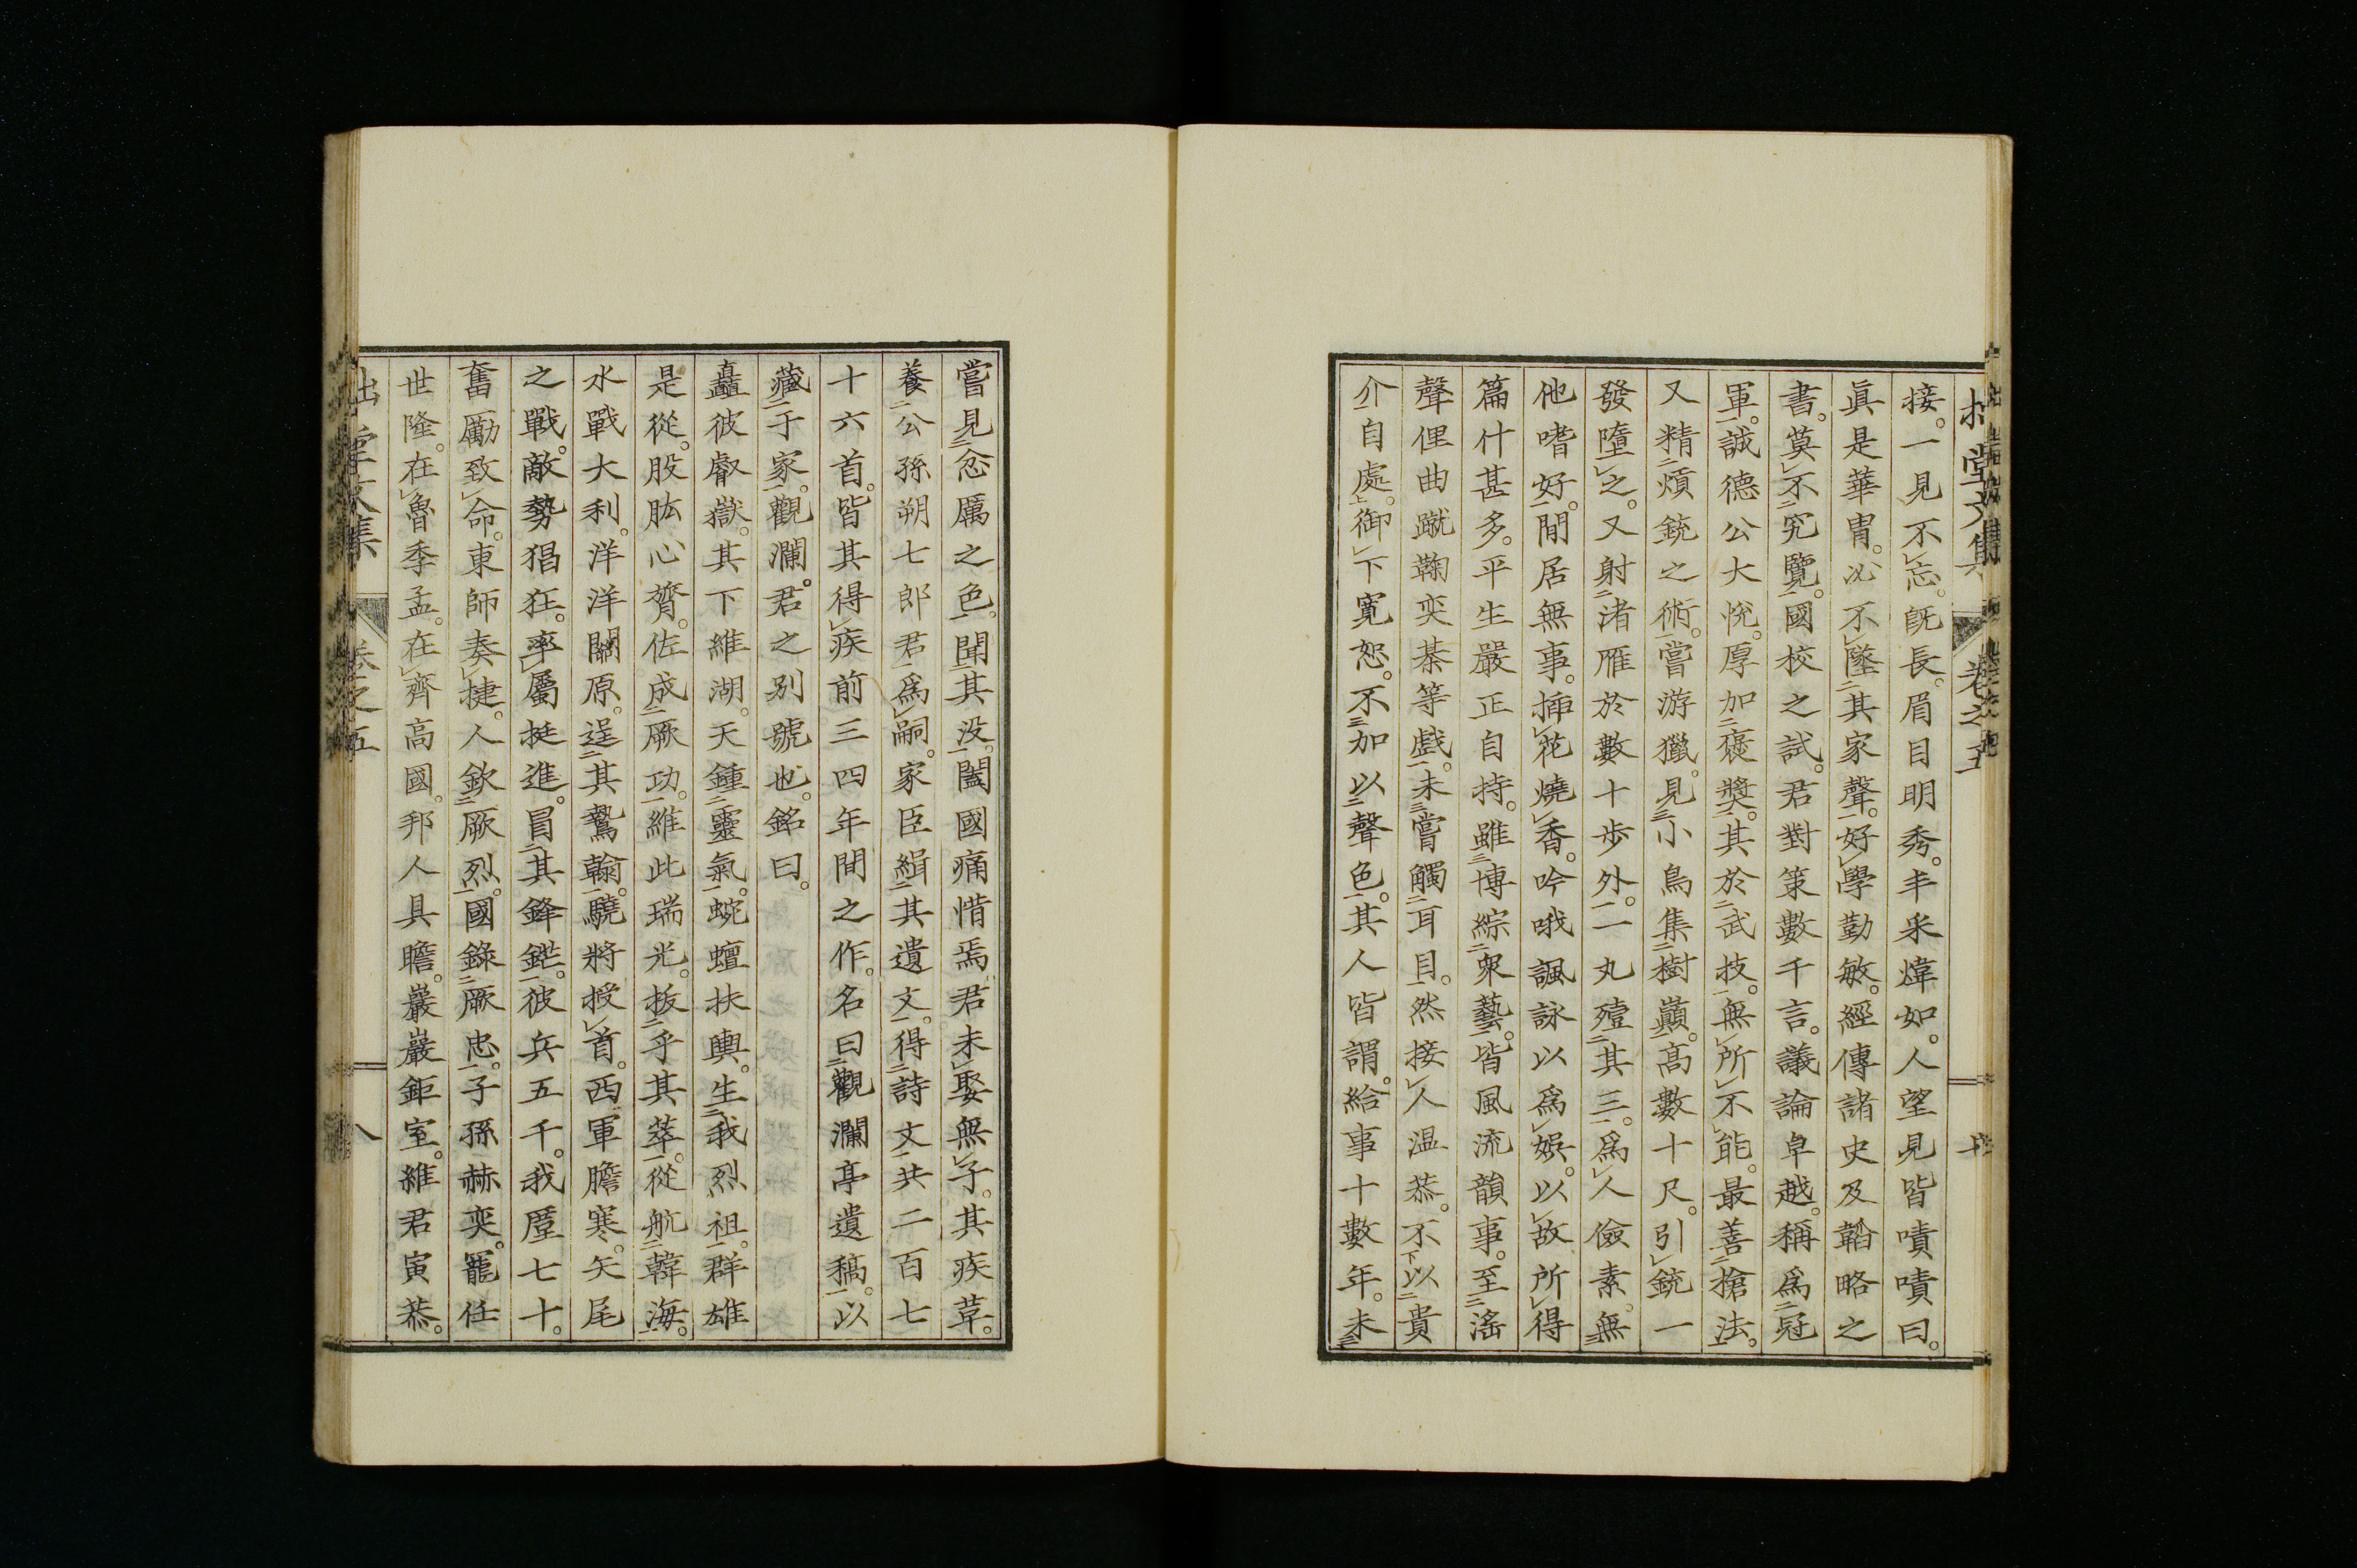 接。一見不忘。既長。眉目明秀。丰采煒如。人望見皆嘖嘖曰。
眞是華胄。必不墜其家聲。好學勤敏。經傳諸史及韜略之
書。莫不究覽。國校之試。君對策數千言。議論卓越。稱爲冠
軍。誠德公大悅。厚加褒奬。其於武技。無所不能。最善搶法。
又精熕銃之術。嘗游獵。見小鳥集樹巓。高數十尺。引銃一
發墮之。又射渚雁於數十步外。一丸殪其三。爲人儉素。無
他嗜好。間居無事。揷花燒香。吟哦諷詠以爲娯。以故所得
篇什甚多。平生嚴正自持。雖博綜衆藝。皆風流韻事。至滛
聲俚曲蹴鞠奕棊等戲。未嘗觸耳目。然接人温恭。不以貴
介自處。御下寛恕。不加以聲色。其人皆謂。給事十數年。未
嘗見忿厲之色。聞其没。闔國痛惜焉。君未娶無子。其疾革。
養公孫朔七郎君爲嗣。家臣緝其遺文。得詩文共二百七
十六首。皆其得疾前三四年間之作。名曰觀瀾亭遺稿。以
藏于家。觀瀾。君之別號也。銘曰。
矗彼叡嶽。其下維湖。天鍾靈氣。蜿蟺扶輿。生我烈祖。群雄
是從。股肱心膂。佐成厥功。維此瑞光。拔乎其萃。從航韓海。
水戰大利。洋洋洋闊原。逞其鷙翰。驍將授首。西軍膽寒。矢尾
之戰。敵勢猖狂。率屬挺進。冒其鋒鋩。彼兵五千。我厪七十。
奮勵致命。東師奏捷。人欽厥烈。國錄厥忠。子孫赫奕。寵任
世隆。在魯季孟。在齊高國。邦人具瞻。巖巖鉅室。維君寅恭。
堂文集 卷之五 八